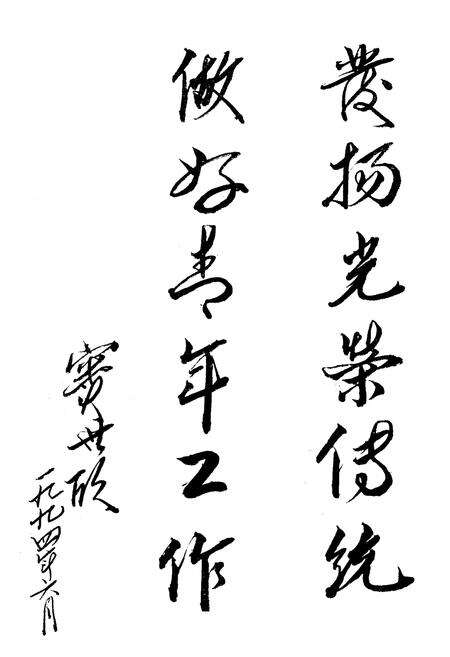 發扬光榮传统
做好青年工作
世欣
一九九四年六月